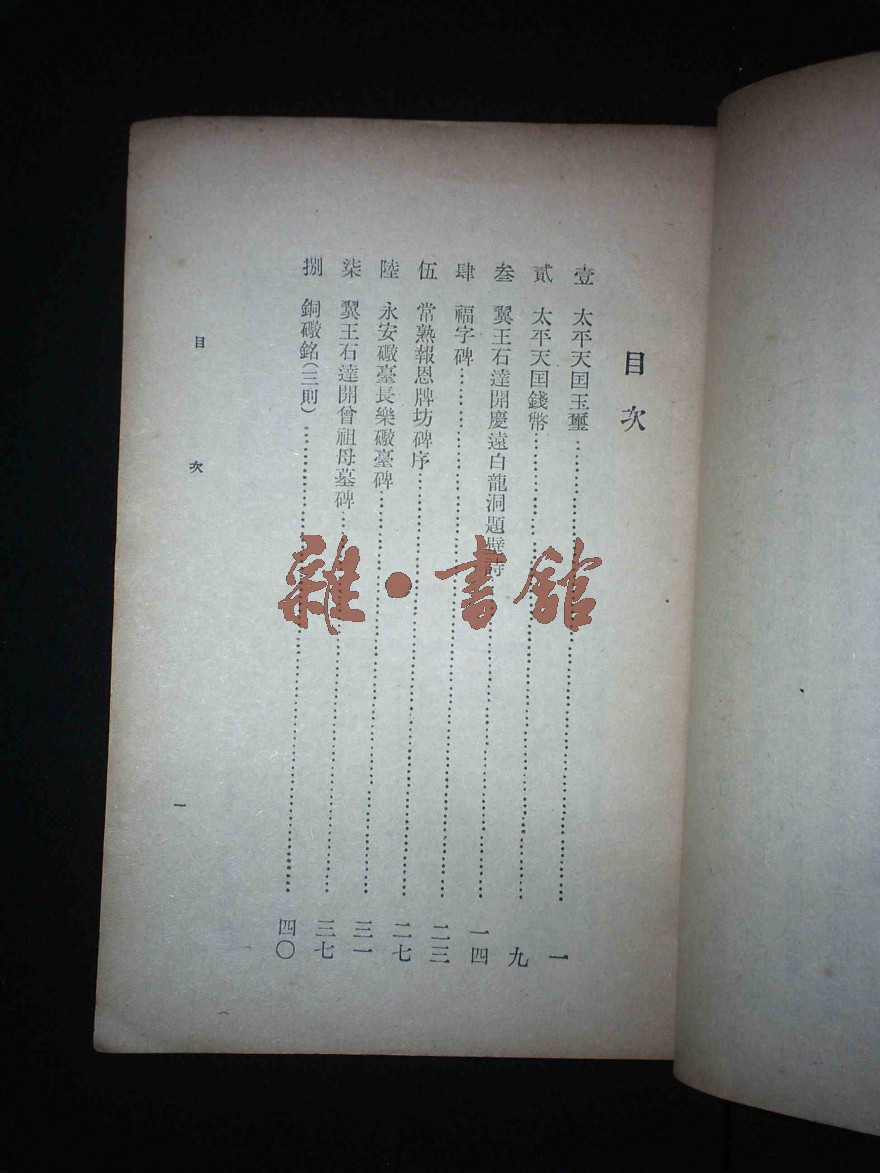 目次
壹 太平天囯玉璽 一
貳 太平天囯錢幣 九
叁 翼王石達開慶遠白龍洞題壁詩 一四
肆 福字碑 二三
伍 常熟報恩牌坊碑序 二七
陸 永安礮臺長樂礮臺碑 三一
柒 翼王石達開曾祖母墓碑 三七
捌 銅礮銘(三則) 四〇
目次 一
雜·書館